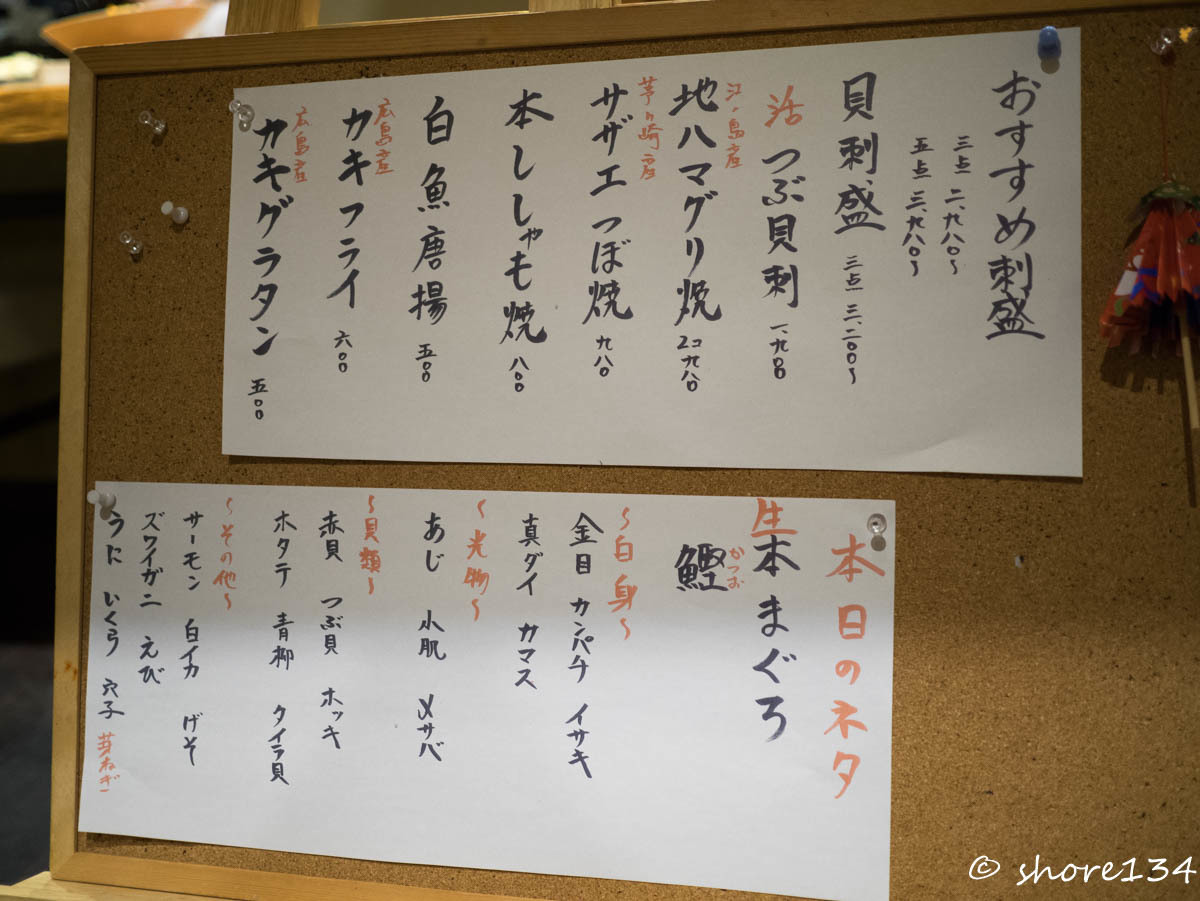 おすすめ刺盛
三点 二、九八〇〜
五点 三、九八〇〜
貝刺盛 三点 三、二〇〇〜
活つぶ貝刺 一、九〇〇
江ノ島産
地ハマグリ焼 2コ九八〇
茅ヶ崎産
サザエつぼ焼 九八〇
本ししゃも焼 八〇〇
白魚唐揚 五〇〇
広島産
カキフライ 六〇〇
広島産
カキグラタン 五〇〇
本日のネタ
生本まぐろ
かつお
鰹
〜白身〜
金目 カンパチ イサキ
真ダイ カマス
〜光物〜
あじ 小肌 〆サバ
〜貝類〜
赤貝 つぶ貝 ホッキ
ホタテ 青柳 タイラ貝
〜その他〜
サーモン 白イカ げそ
ズワイガニ えび
うに いくら 穴子 芽ねぎ
© shore134